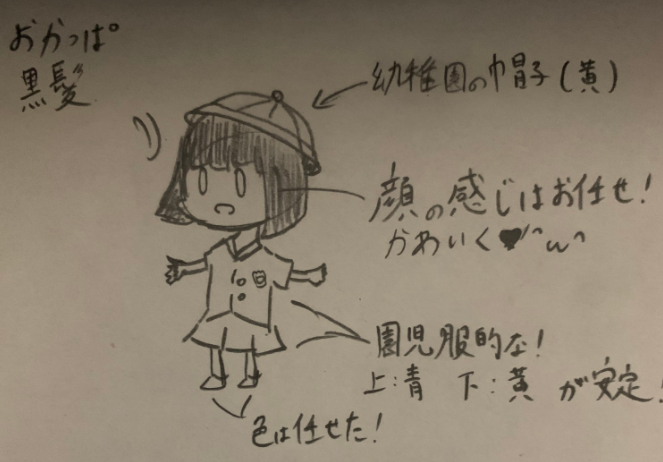 おかっぱ
黒髪
幼稚園の帽子(黄)
顔の感じはお任せ!
かわいく♥^ω^
園児服的な!
上:青 下:黄 が安定!
色は任せた!